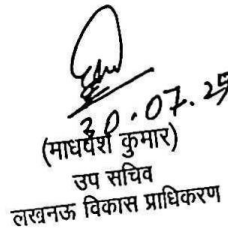 30.07.25
(माधवेश कुमार)
उप सचिव
लखनऊ विकास प्राधिकरण